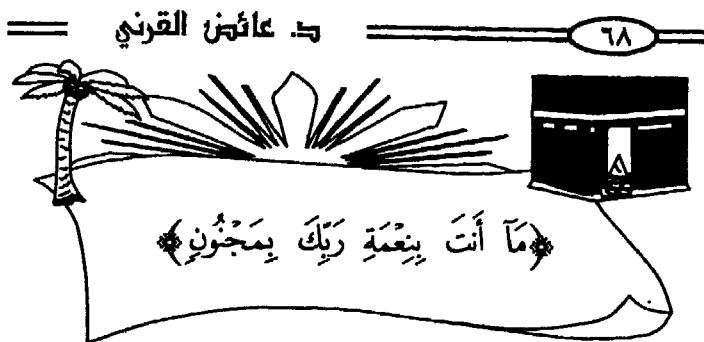 ٦٨ د. عائض القرني
﴿مَآ أَنتَ بِنِعْمَةِ رَبِّكَ بِمَجْنُونٍ﴾